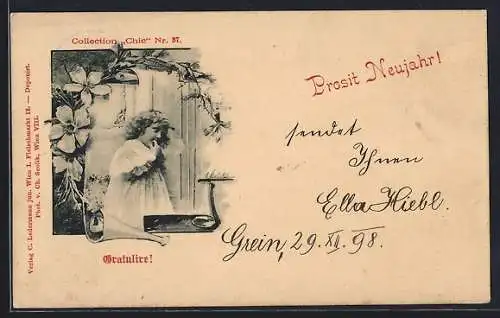 Collection „Chic“ Nr. 37.
Verlag C. Ledermann jun. Wien I. Fleischmarkt 12. — Deponiert.
Phot. v. Ch. Scolik, Wien VIII.
Gratulire!
Prosit Neujahr!
sendet
Ihnen
Ella Hiebl.
Grein, 29. XII. 98.